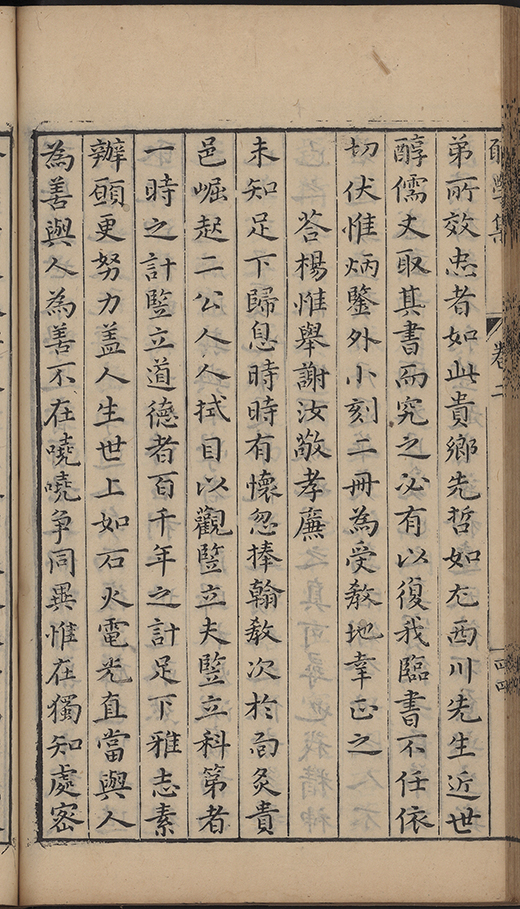 卷二
弟所效忠者如此貴鄉先哲如尤西川先生近世
醇儒丈取其書而究之必有以復我臨書不任依
切伏惟炳鑒外小刻二冊為受教地幸正之
荅楊惟舉謝汝敬孝廉
未知足下歸息時時有懷忽捧翰教次於面炙貴
邑崛起二公人人拭目以觀豎立夫豎立科第者
一時之計豎立道德者百千年之計足下雅志素
辦願更努力盖人生世上如石火電光直當與人
為善與人為善不在嘵嘵争同異惟在獨知處密